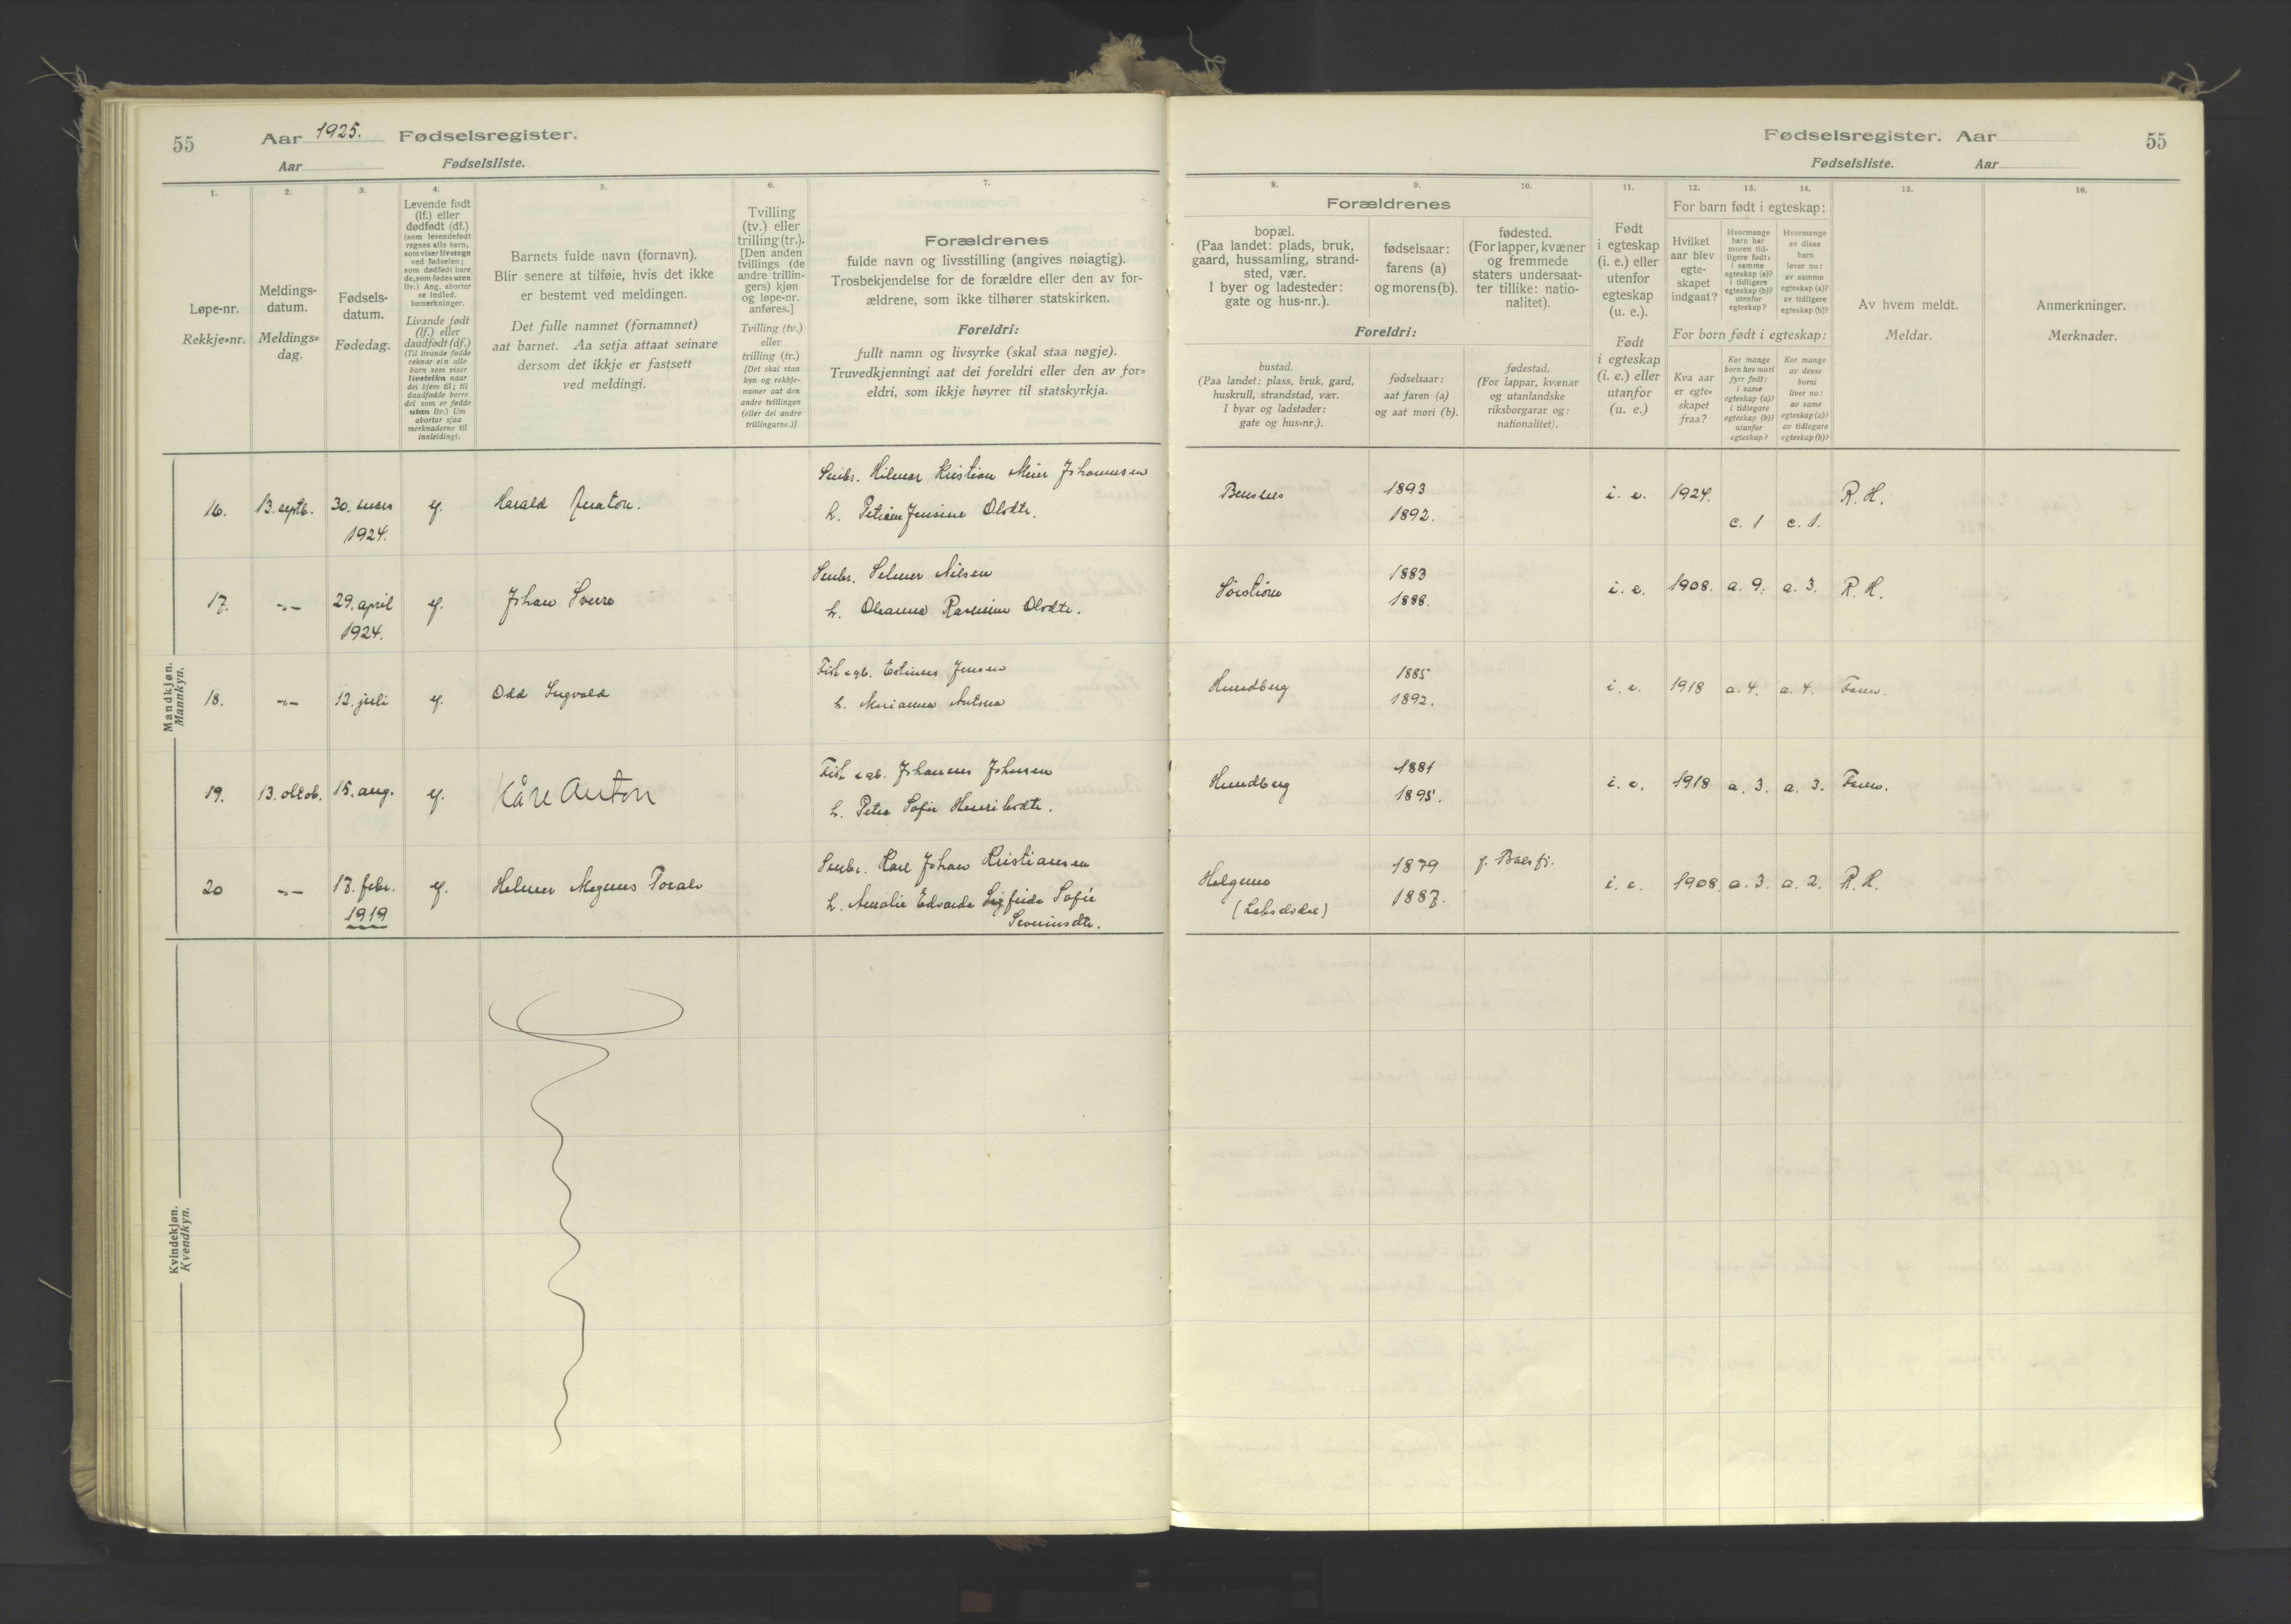 55
Aar 1925. Fødselsregister.
Aar Fødselsliste.
1. 2. 3. 4. 5. 6. 7.
Løpe-nr.
Rekkje=nr.
Meldings-
datum.
Meldings=
dag.
Fødsels-
datum.
Fødedag.
Levende født
(lf.) eller
dødfødt (df.)
(som levendefødt
regnes alle barn,
som viser livstegn
ved fødselen;
som dødfødt bare
de, som fødes uten
liv.) Ang. aborter
se indled.
bemerkninger.
Livande født
(lf.) eller
daudfødt (df.)
(Til livande fødde
reknar ein alle
barn som viser
livsteikn naar
dei kjem til; til
daudfødde berre
dei som er fødde
utan liv.) Um
abortar sjaa
merknaderne til
innleidingi.
Barnets fulde navn (fornavn).
Blir senere at tilføie, hvis det ikke
er bestemt ved meldingen.
Det fulle namnet (fornamnet)
aat barnet. Aa setja attaat seinare
dersom det ikkje er fastsett
ved meldingi.
Tvilling
(tv.) eller
trilling (tr.).
[Den anden
tvillings (de
andre trillin-
gers) kjøn
og løpe-nr.
anføres.]
Tvilling (tv.)
eller
trilling (tr.)
[Det skal staa
kyn og rekkje-
numer aat den
andre tvillingen
(eller dei andre
trillingarne.)]
Forældrenes
fulde navn og livsstilling (angives nøiagtig).
Trosbekjendelse for de forældre eller den av for-
ældrene, som ikke tilhører statskirken.
Foreldri:
fullt namn og livsyrke (skal staa nøgje).
Truvedkjenningi aat dei foreldri eller den av for=
eldri, som ikkje høyrer til statskyrkja.
Mandkjøn.
Mannkyn.
16. 13. septb. 30. mars lf. Harald Anton. Småbr. Hilmar Kristian Meier Johannesen
1924. h. Petrine Jensine Olsdtr.
17. -"- 29. april lf. Johan Sverre Småbr. Selmer Nilsen
1924. h. Oleanna Rasmine Olsdtr.
18. -"- 12. juli lf. Odd Ingvald Fisk. & gb. Jensen
h. Marianna
19. 13. oktob. 15. aug. lf. Kåre Anton Fisk. & gb. Johannes Johnsen
h. Petra Sofie Henriksdtr.
20 -"- 17. febr. lf. Helmer Magnus Toralv Småbr. Karl Johan Kristiansen
1919 h. Amalie Edvarda Sigfrida Sofie
Severinsdtr.
Kvindekjøn.
Kvendkyn.
Fødselsregister. Aar 55
Fødselsliste. Aar
8. 9. 10. 11. 12. 13. 14. 15. 16.
Forældrenes
bopæl.
(Paa landet: plads, bruk,
gaard, hussamling, strand-
sted, vær.
I byer og ladesteder:
gate og hus-nr.).
fødselsaar:
farens (a)
og morens (b).
fødested.
(For lapper, kvæner
og fremmede
staters undersaat-
ter tillike: natio-
nalitet).
Foreldri:
bustad.
(Paa landet: plass, bruk, gard,
huskrull, strandstad, vær.
I byar og ladstader:
gate og hus=nr.).
fødselsaar:
aat faren (a)
og aat mori (b).
fødestad.
(For lappar, kvænar
og utanlandske
riksborgarar og:
nationalitet).
Født
i egteskap
(i. e.) eller
utenfor
egteskap
(u. e.).
Født
i egteskap
(i. e.) eller
utanfor
(u. e.)
For barn født i egteskap:
Hvilket
aar blev
egte-
skapet
indgaat?
Hvormange
barn har
moren tid-
ligere født:
i samme
egteskap (a)?
i tidligere
egteskap (b)?
utenfor
egteskap?
Hvormange
av disse
barn
lever nu:
av samme
egteskap (a)?
av tidligere
egteskap (b)?
For born født i egteskap:
Kva aar
er egte=
skapet
fraa?
Kor mange
born hev mori
fyrr født:
i same
egteskap (a)?
i tidlegare
egteskap (b)?
utanfor
egteskap?
Kor mange
av desse
borni
liver no:
av same
egteskap (a)?
av tidlegare
egteskap (b)?
Av hvem meldt.
Meldar.
Anmerkninger.
Merknader.
Bensnes 1893 i. e. 1924. R. H.
1892. c. 1 c. 1.
1883 i. e. 1908. a. 9. a. 3. R. H.
1888.
Hundberg 1885 i. e. 1918 a. 4. a. 4. Faren.
1892.
Hundberg 1881 i. e. 1918 a. 3. a. 3. Faren.
1895.
Helgemo 1879 f. Balsfj. i. e. 1908. a. 3. a. 2. R. H.
(Lakselvdal) 1887.